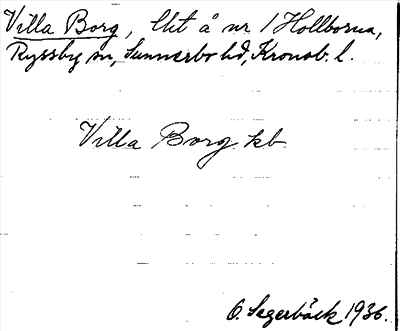 Villa Borg, lht å nr 1 Hollborna,
Ryssby sn, Sunnerbo hd, Kronob. l.
Villa Borg kb
O. Segerbäck 1936.